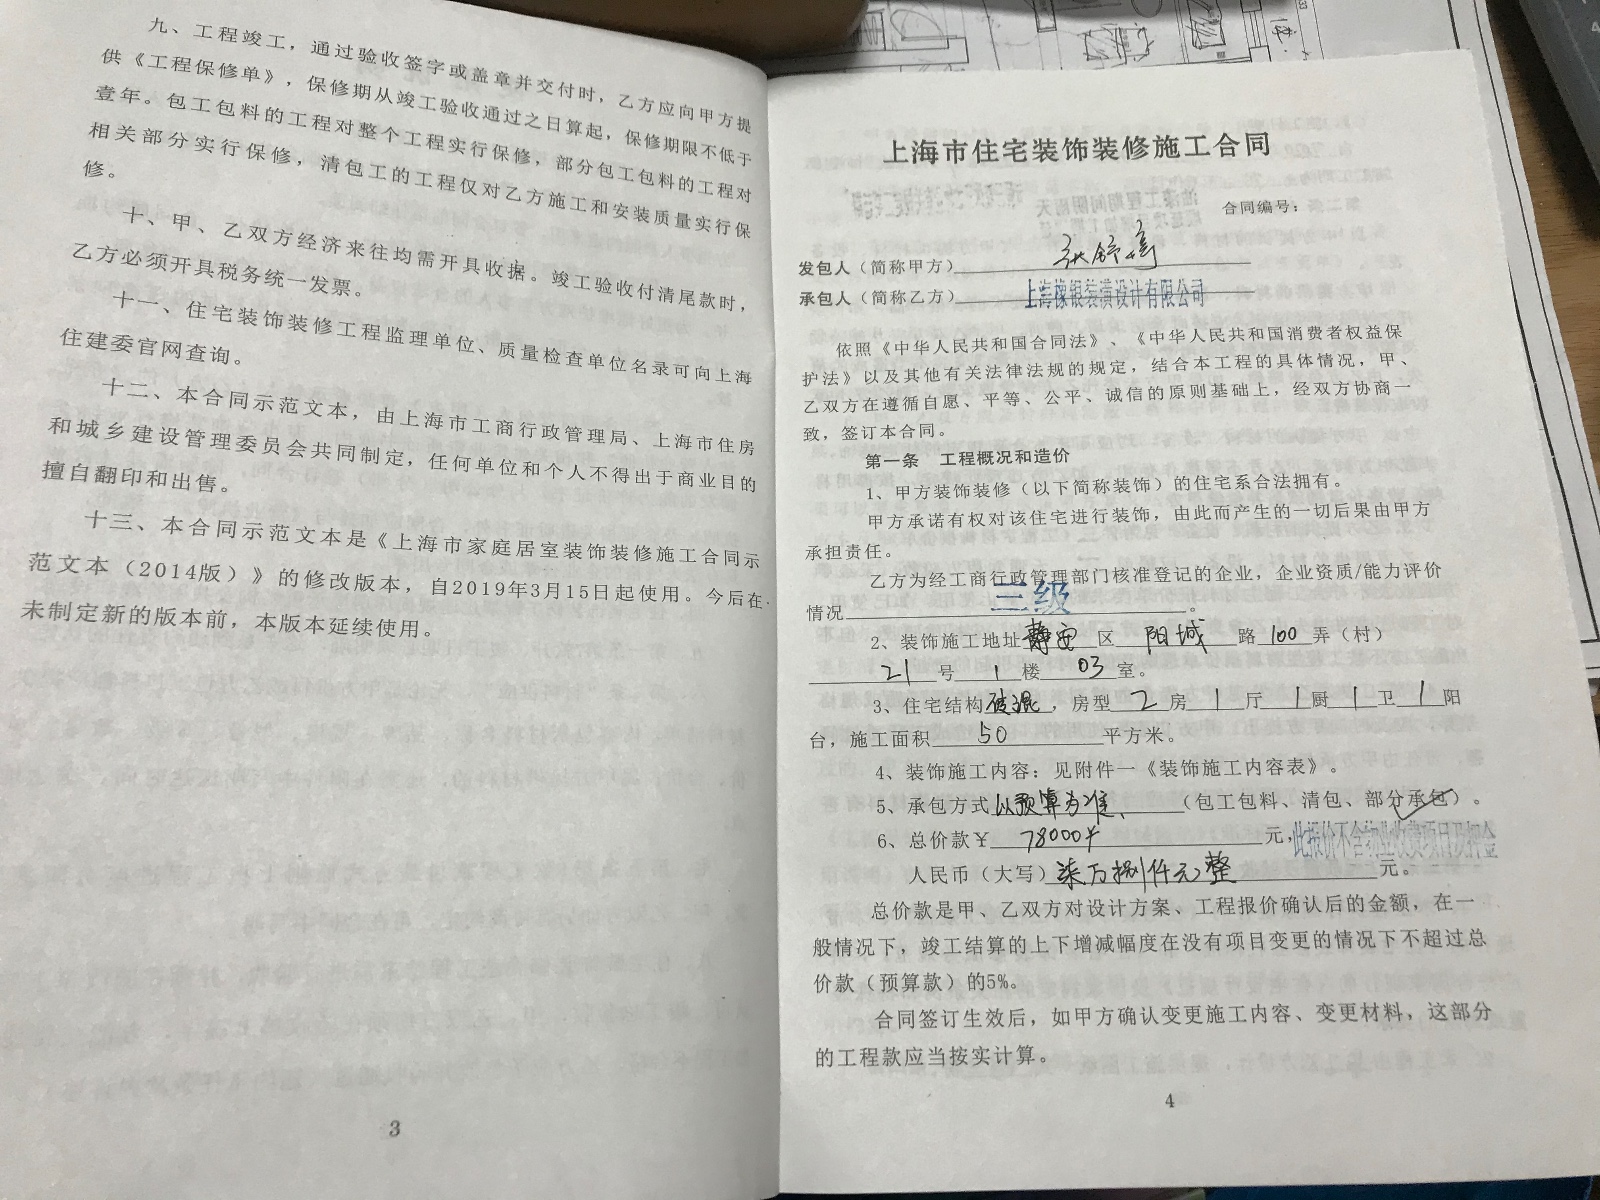 九、工程竣工，通过验收签字或盖章并交付时，乙方应向甲方提
供《工程保修单》，保修期从竣工验收通过之日算起，保修期限不低于
壹年。包工包料的工程对整个工程实行保修，部分包工包料的工程对
相关部分实行保修，清包工的工程仅对乙方施工和安装质量实行保
修。
十、甲、乙双方经济来往均需开具收据。竣工验收付清尾款时，
乙方必须开具税务统一发票。
十一、住宅装饰装修工程监理单位、质量检查单位名录可向上海
住建委官网查询。
十二、本合同示范文本，由上海市工商行政管理局、上海市住房
和城乡建设管理委员会共同制定，任何单位和个人不得出于商业目的
擅自翻印和出售。
十三、本合同示范文本是《上海市家庭居室装饰装修施工合同示
范文本（2014版）》的修改版本，自2019年3月15日起使用。今后在
未制定新的版本前，本版本延续使用。
3
上海市住宅装饰装修施工合同
合同编号：
发包人（简称甲方）
承包人（简称乙方）上海橡银装潢设计有限公司
依照《中华人民共和国合同法》、《中华人民共和国消费者权益保
护法》以及其他有关法律法规的规定，结合本工程的具体情况，甲、
乙双方在遵循自愿、平等、公平、诚信的原则基础上，经双方协商一
致，签订本合同。
第一条 工程概况和造价
1、甲方装饰装修（以下简称装饰）的住宅系合法拥有。
甲方承诺有权对该住宅进行装饰，由此而产生的一切后果由甲方
承担责任。
乙方为经工商行政管理部门核准登记的企业，企业资质/能力评价
情况三级。
2、装饰施工地址静安区阳城路100弄（村）
21号1楼03室。
3、住宅结构砖混，房型2房1厅1厨1卫1阳
台，施工面积50平方米。
4、装饰施工内容：见附件一《装饰施工内容表》。
5、承包方式以预算为准、（包工包料、清包、部分承包）。
6、总价款￥78000￥元，此报价不含物业收费项目及押金
人民币（大写）柒万捌仟元整元。
总价款是甲、乙双方对设计方案、工程报价确认后的金额，在一
般情况下，竣工结算的上下增减幅度在没有项目变更的情况下不超过总
价款（预算款）的5%。
合同签订生效后，如甲方确认变更施工内容、变更材料，这部分
的工程款应当按实计算。
4